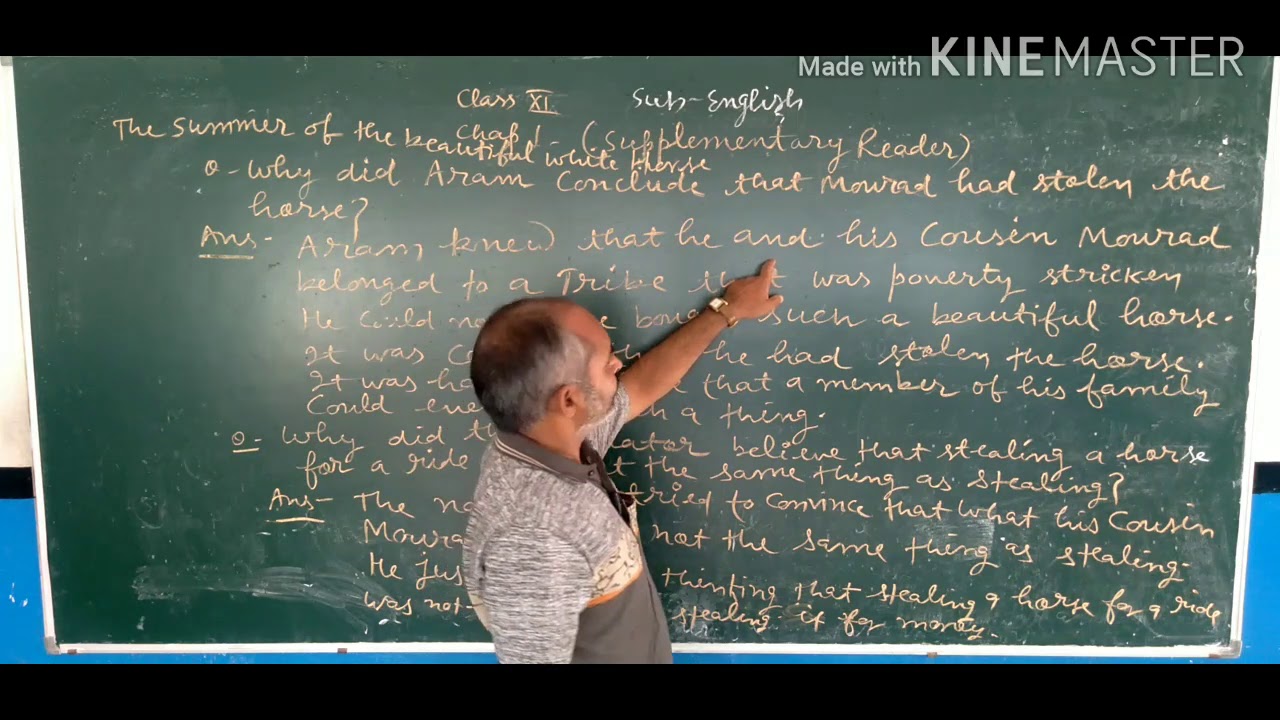 Made with KINEMASTER
Class XI Sub-English
Chap 1 - (Supplementary Reader)
The Summer of the beautiful white horse
Q- Why did Aram Conclude that Mourad had stolen the
horse?
Ans- Aram, knew that he and his Cousin Mourad
belonged to a Tribe that was poverty stricken
He Could such a beautiful horse.
It was he had stolen the horse.
It was that a member of his family
Could a thing.
Q- Why did believe that stealing a horse
for a ride the same thing as stealing?
Ans- The tried to Convince that what his Cousin
not the same thing as stealing.
He thinking that stealing a horse for a ride
was not stealing it for money.